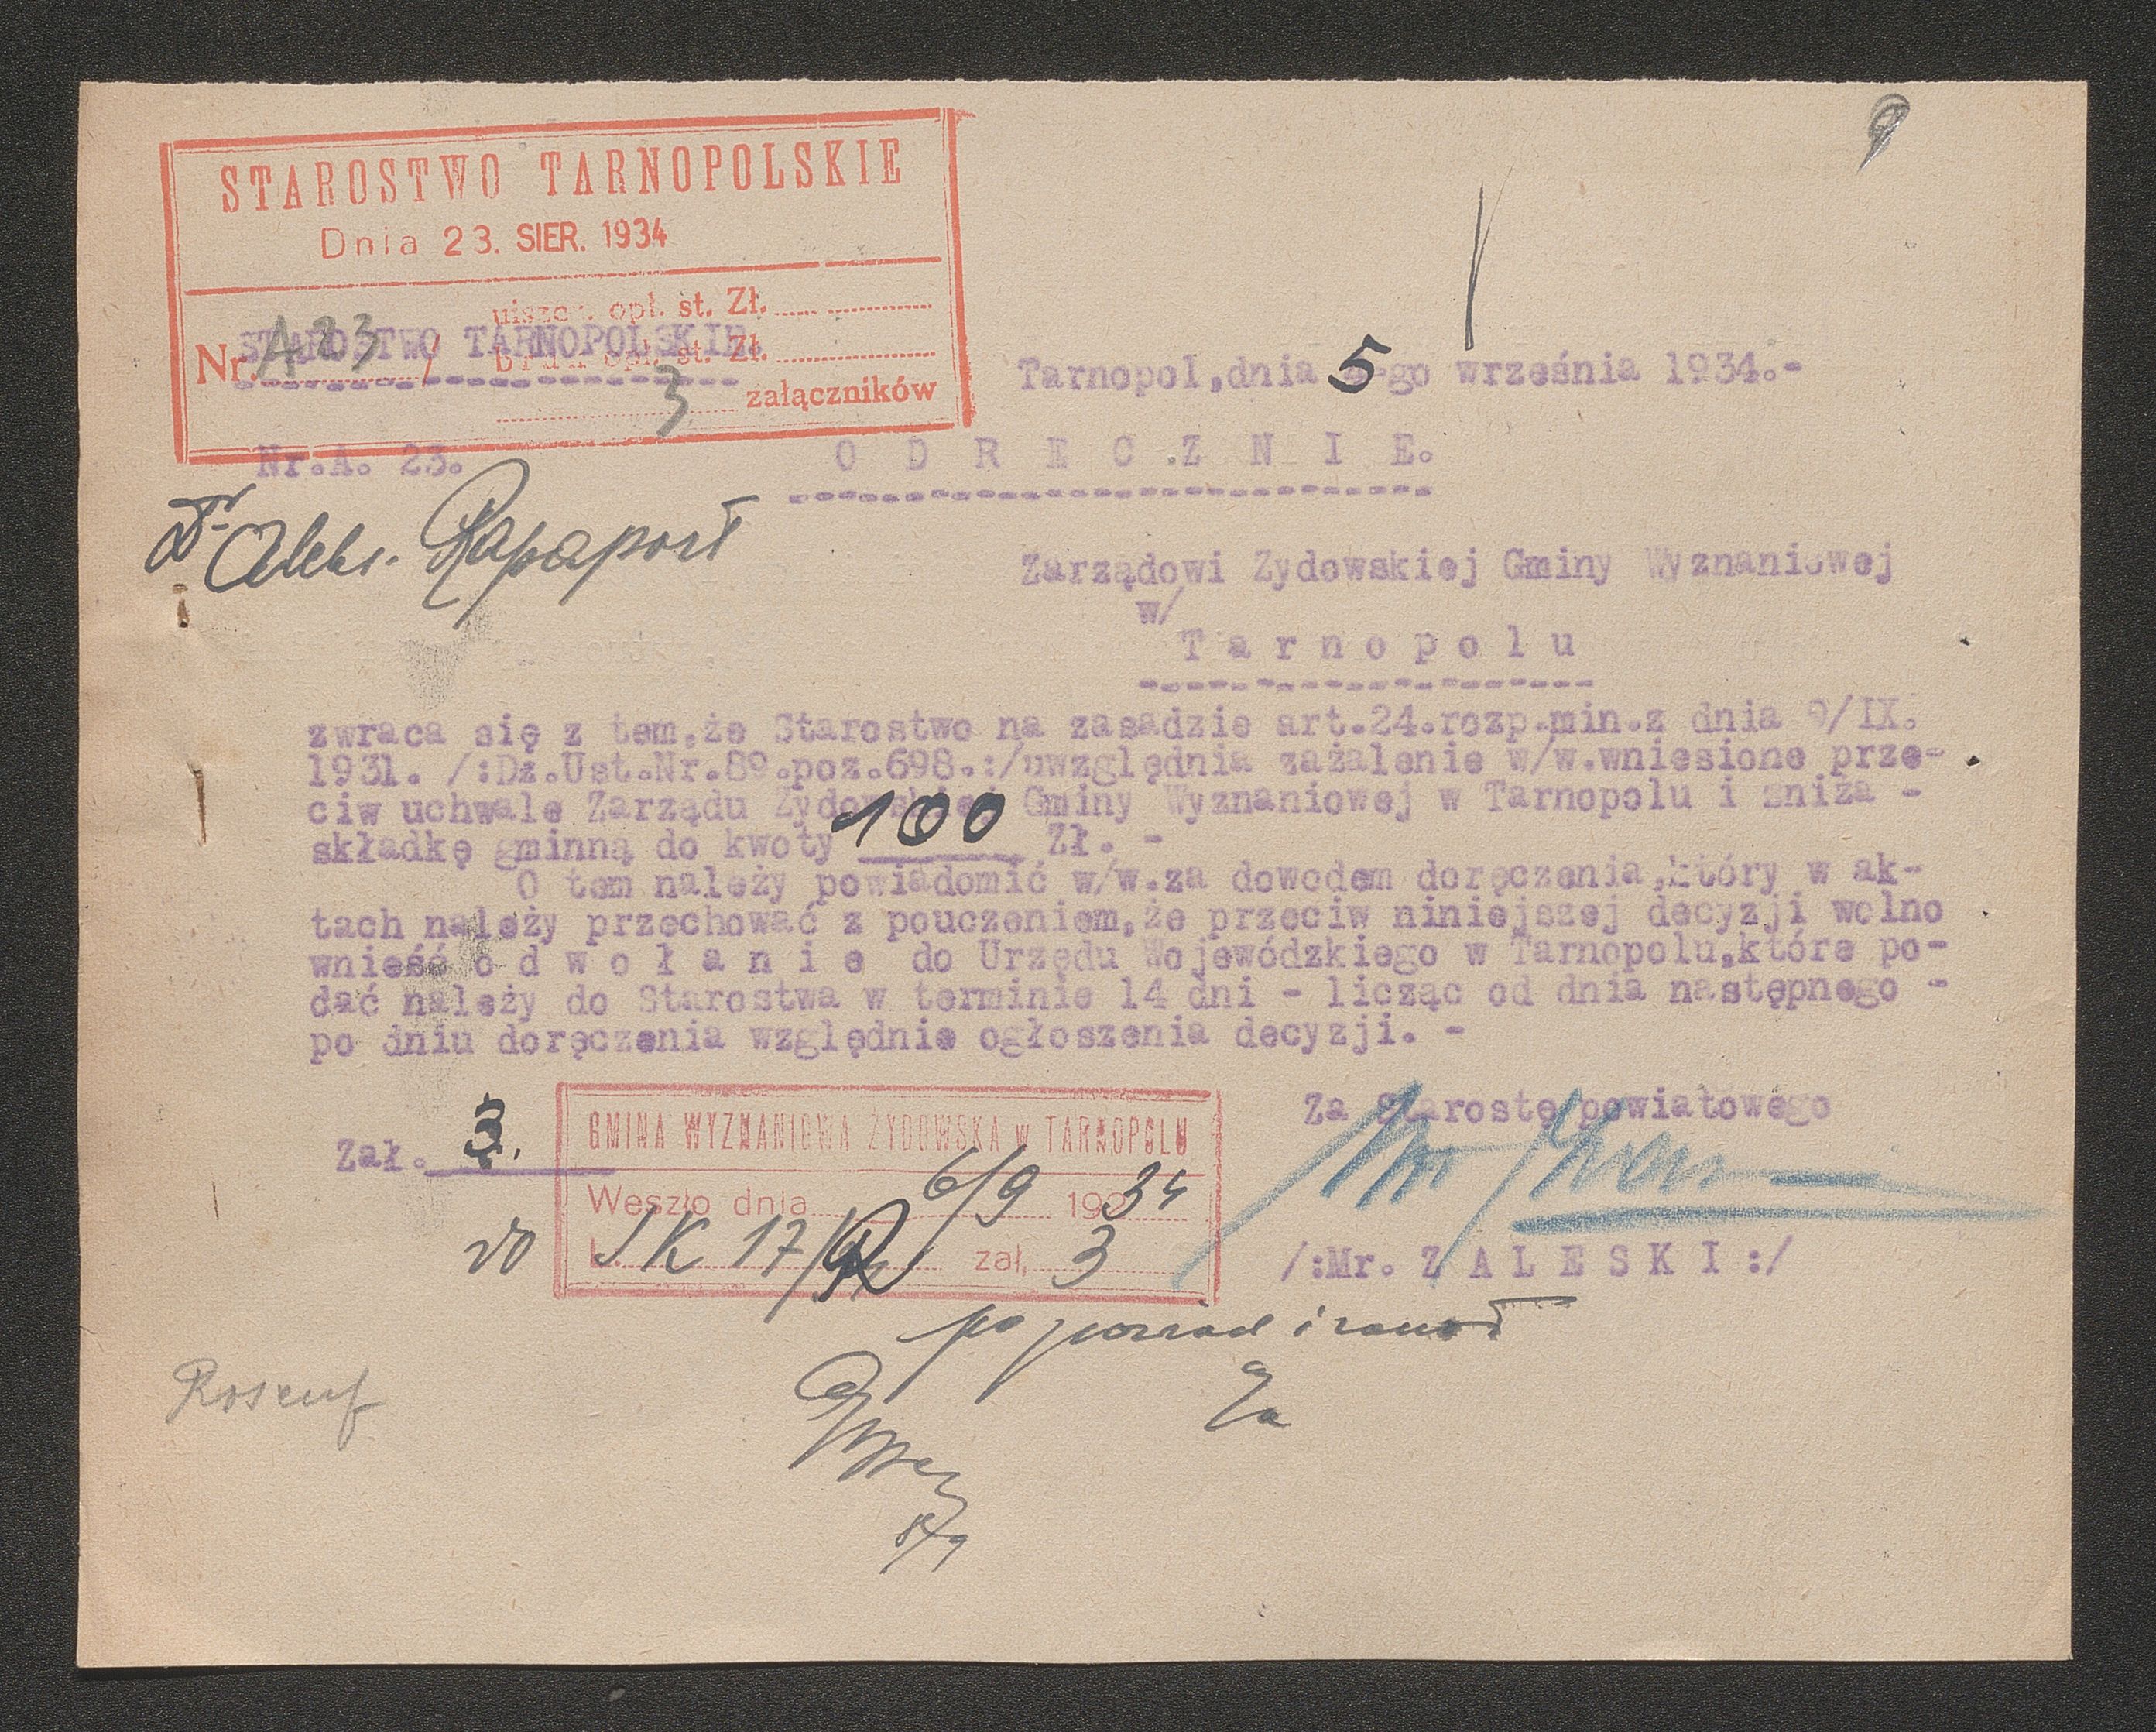 STAROSTWO TARNOPOLSKIE
Dnia 23. SIER. 1934
uiszcz. opł. st. Zł.
STAROSTWO TARNOPOLSKIE.
Nr. A 23 / brak opł. st. Zł.
3 załączników
Tarnopol,dnia 5-go września 1934.-
Nr.A. 23.
O D R E C Z N I E.
Dr Aleks. Rapaport
Zarządowi Zydowskiej Gminy Wyznaniowej
w/
T a r n o p o l u
zwraca się z tem,że Starostwo na zasadzie art.24.rozp.min.z dnia 9/IX.
1931. /:Dz.Ust.Nr.89.poz.698.:/uwzględnia zażalenie w/w.wniesione prze-
ciw uchwale Zarządu Zydowskiej Gminy Wyznaniowej w Tarnopolu i zniża -
składkę gminną do kwoty 100 Zł. -
O tem należy powiadomić w/w.za dowodem doręczenia,który w ak-
tach należy przechować z pouczeniem,że przeciw niniejszej decyzji wolno
wnieść o d w o ł a n i e do Urzędu Wojewódzkiego w Tarnopolu,które po-
dać należy do Starostwa w terminie 14 dni - licząc od dnia następnego -
po dniu doręczenia względnie ogłoszenia decyzji. -
Za Starostę powiatowego
Zał. 3.
GMINA WYZNANIOWA ŻYDOWSKA w TARNOPOLU
Weszło dnia 6/9 1934
do L. JK 17/ zał, 3
/:Mr. Z A L E S K I :/